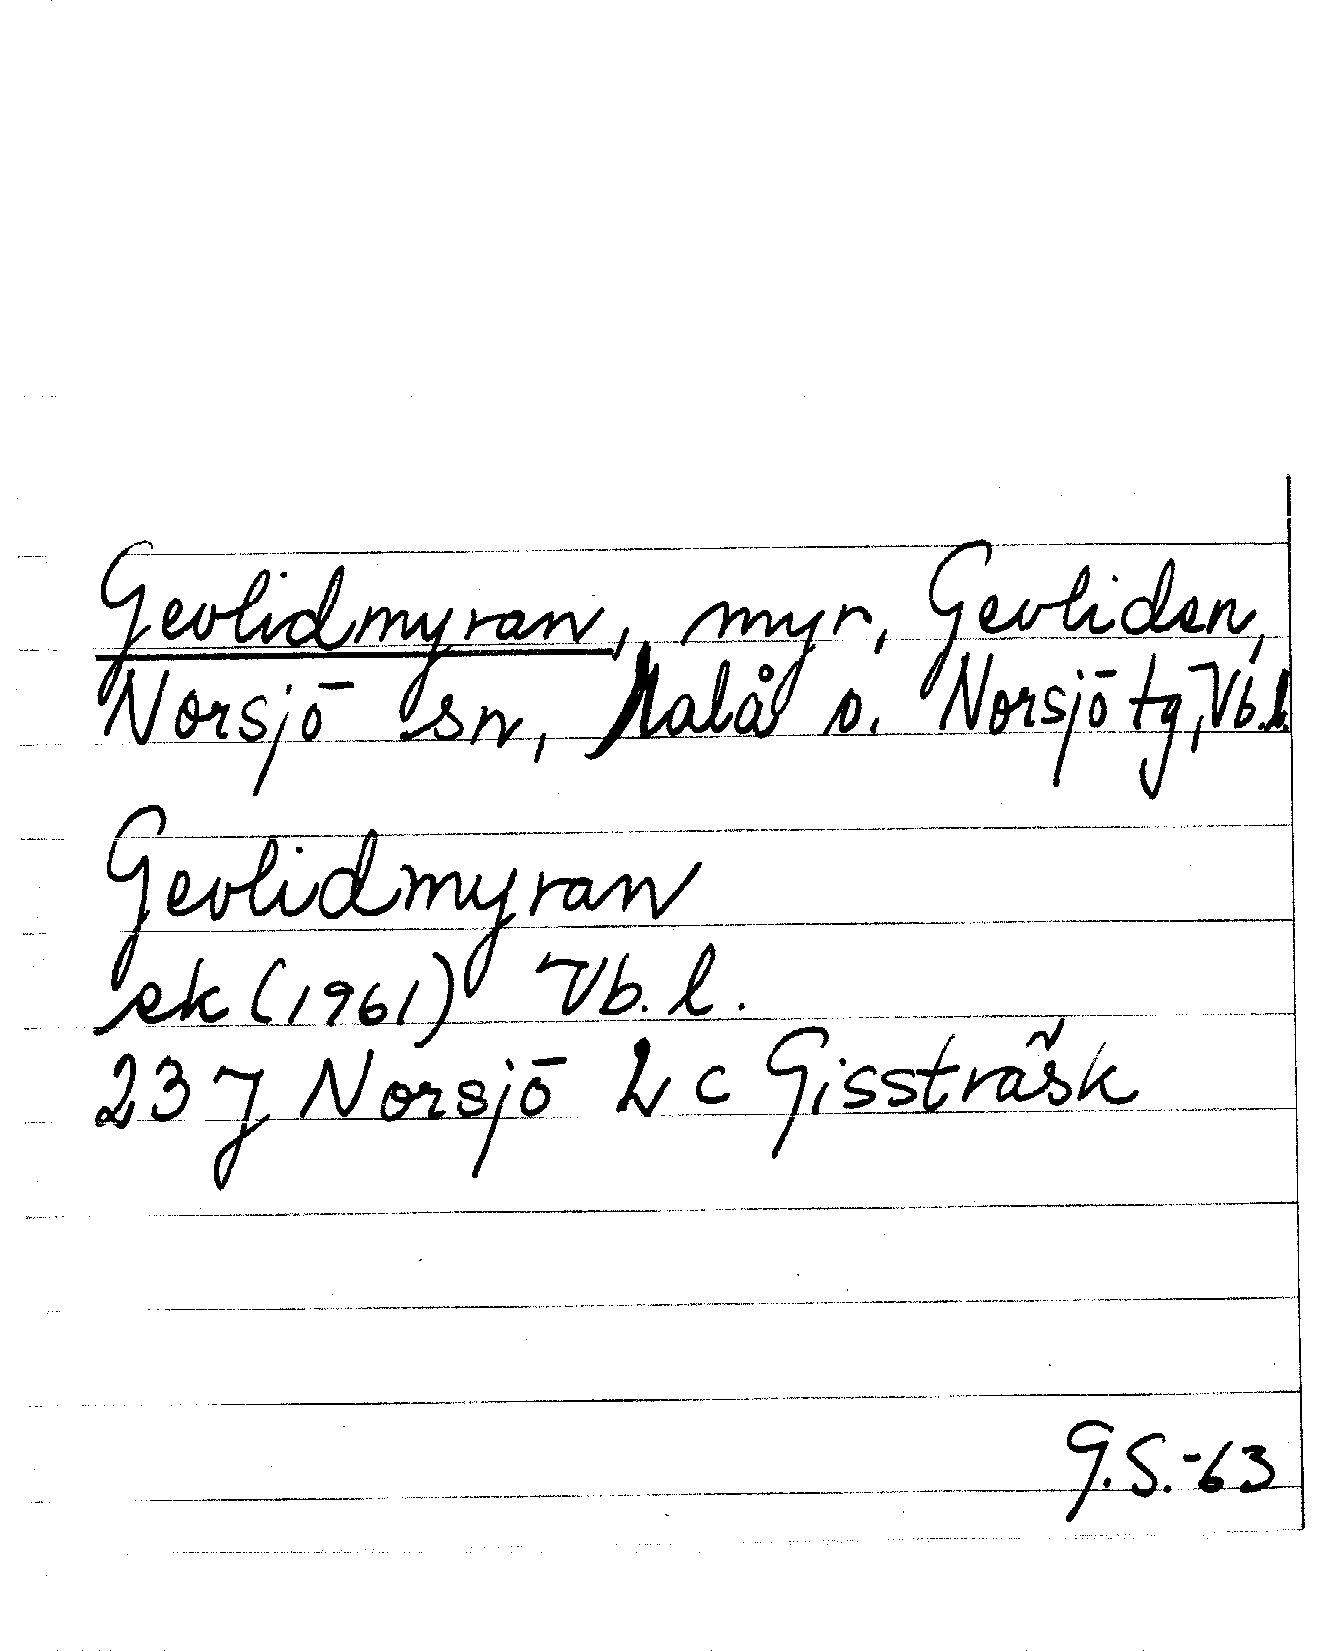 Gevlidmyran, myr, Gevliden,
Norsjö sn, Malå o. Norsjö tg, Vb.l.
Gevlidmyran
ek (1961) Vb. l.
23 J Norsjö 2 c Gissträsk
G.S.-63